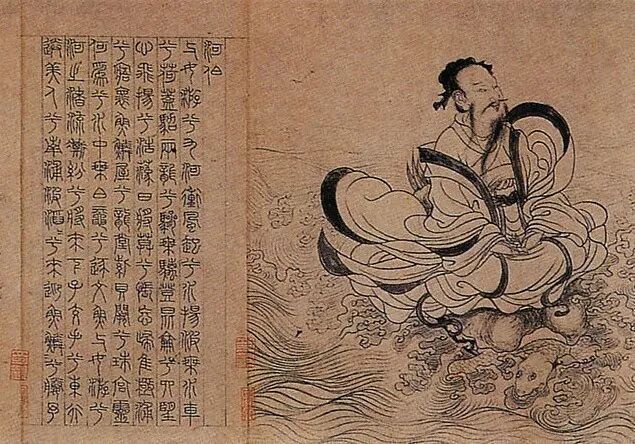 河伯
与女游兮九河衝風起兮水揚波乘水車
兮荷蓋駕兩龍兮驂螭登昆侖兮四望
心飛揚兮浩蕩日將莫兮悵忘歸惟極浦
兮寤懷魚鱗屋兮龍堂紫貝闕兮珠宮靈
何爲兮水中乘白黿兮逐文魚与女游兮
河之渚流澌紛兮將來下子交手兮東行
送美人兮南浦波滔兮來迎魚鱗兮媵予